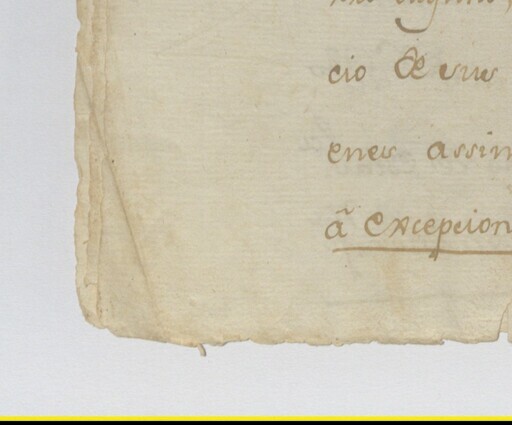 cio de sus
enes assim
â excepcion